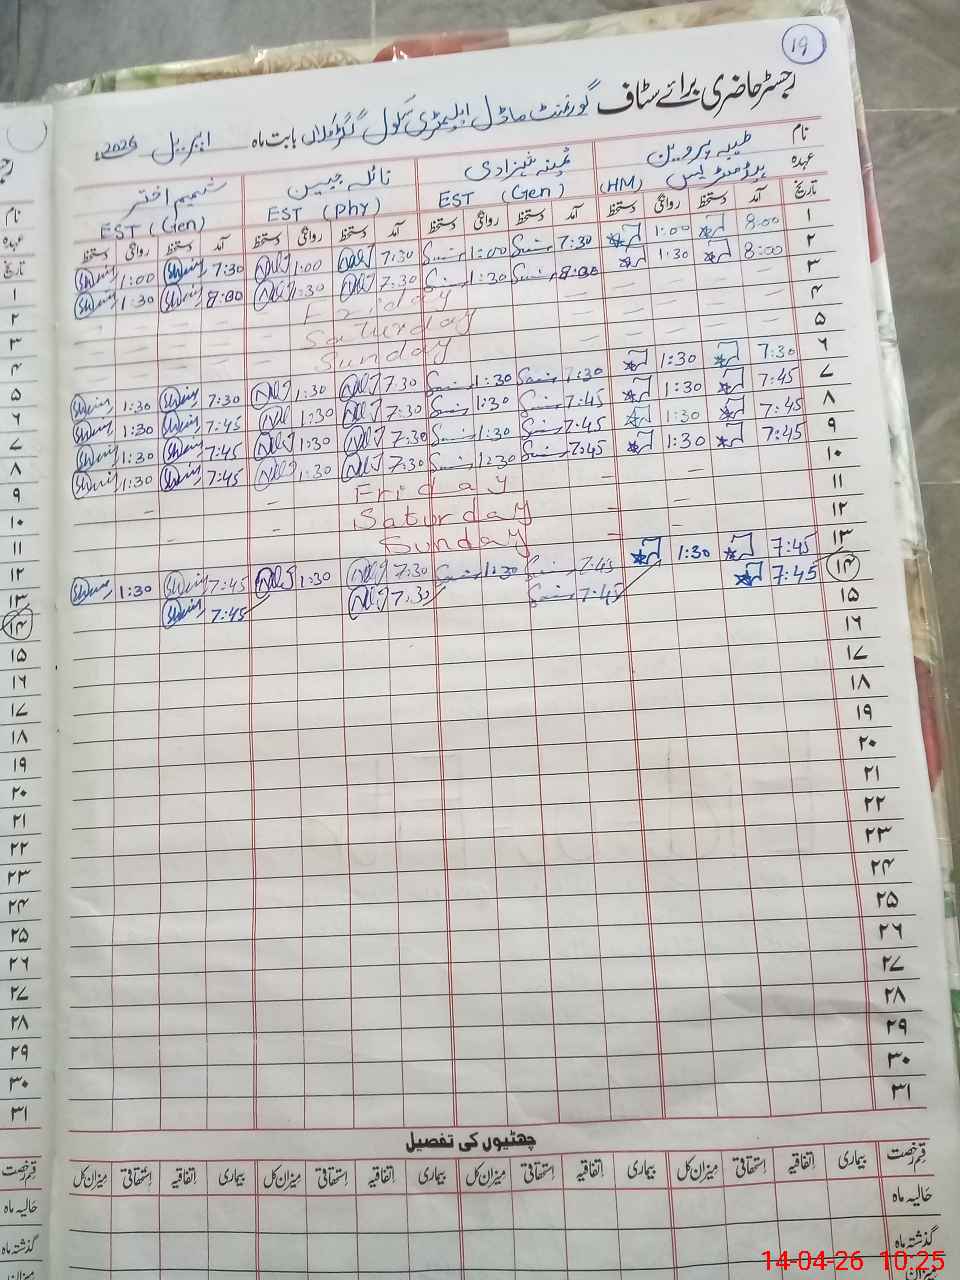 ۱۹
رجسٹر حاضری برائے سٹاف گورنمنٹ ماڈل ایلیمنٹری سکول بابت ماہ اپریل 2026ء
نام طیبہ پروین ثمینہ شہزادی نائلہ جبیں شمیم اختر
عہدہ ہیڈ مسٹریس (HM) EST (Gen) EST (Phy) EST (Gen)
تاریخ آمد دستخط روانگی دستخط آمد دستخط روانگی دستخط آمد دستخط روانگی دستخط آمد دستخط روانگی دستخط
۱ 8:00 1:00 7:30 1:00 7:30 1:00 7:30 1:00
۲ 8:00 1:30 8:00 1:30 7:30 1:30 8:00 1:30
۳ Friday
۴ Saturday
۵ Sunday
۶ 7:30 1:30 7:30 1:30 7:30 1:30 7:30 1:30
۷ 7:45 1:30 7:45 1:30 7:30 1:30 7:45 1:30
۸ 7:45 1:30 7:45 1:30 7:30 1:30 7:45 1:30
۹ 7:45 1:30 7:45 1:30 7:30 1:30 7:45 1:30
۱۰ Friday
۱۱ Saturday
۱۲ Sunday
۱۳ 7:45 1:30 7:45 1:30 7:30 1:30 7:45 1:30
۱۴ 7:45 7:45 7:30 7:45
۱۵
۱۶
۱۷
۱۸
۱۹
۲۰
۲۱
۲۲
۲۳
۲۴
۲۵
۲۶
۲۷
۲۸
۲۹
۳۰
۳۱
چھٹیوں کی تفصیل
قسم رخصت بیماری اتفاقیہ استحقاقی میزان کل بیماری اتفاقیہ استحقاقی میزان کل بیماری اتفاقیہ استحقاقی میزان کل بیماری اتفاقیہ استحقاقی میزان کل
حالیہ ماہ
گذشتہ ماہ
میزان
نام
عہدہ
تاریخ
۱
۲
۳
۴
۵
۶
۷
۸
۹
۱۰
۱۱
۱۲
۱۳
۱۴
۱۵
۱۶
۱۷
۱۸
۱۹
۲۰
۲۱
۲۲
۲۳
۲۴
۲۵
۲۶
۲۷
۲۸
۲۹
۳۰
۳۱
قسم رخصت
حالیہ ماہ
گذشتہ ماہ
میزان
14-04-26 10:25